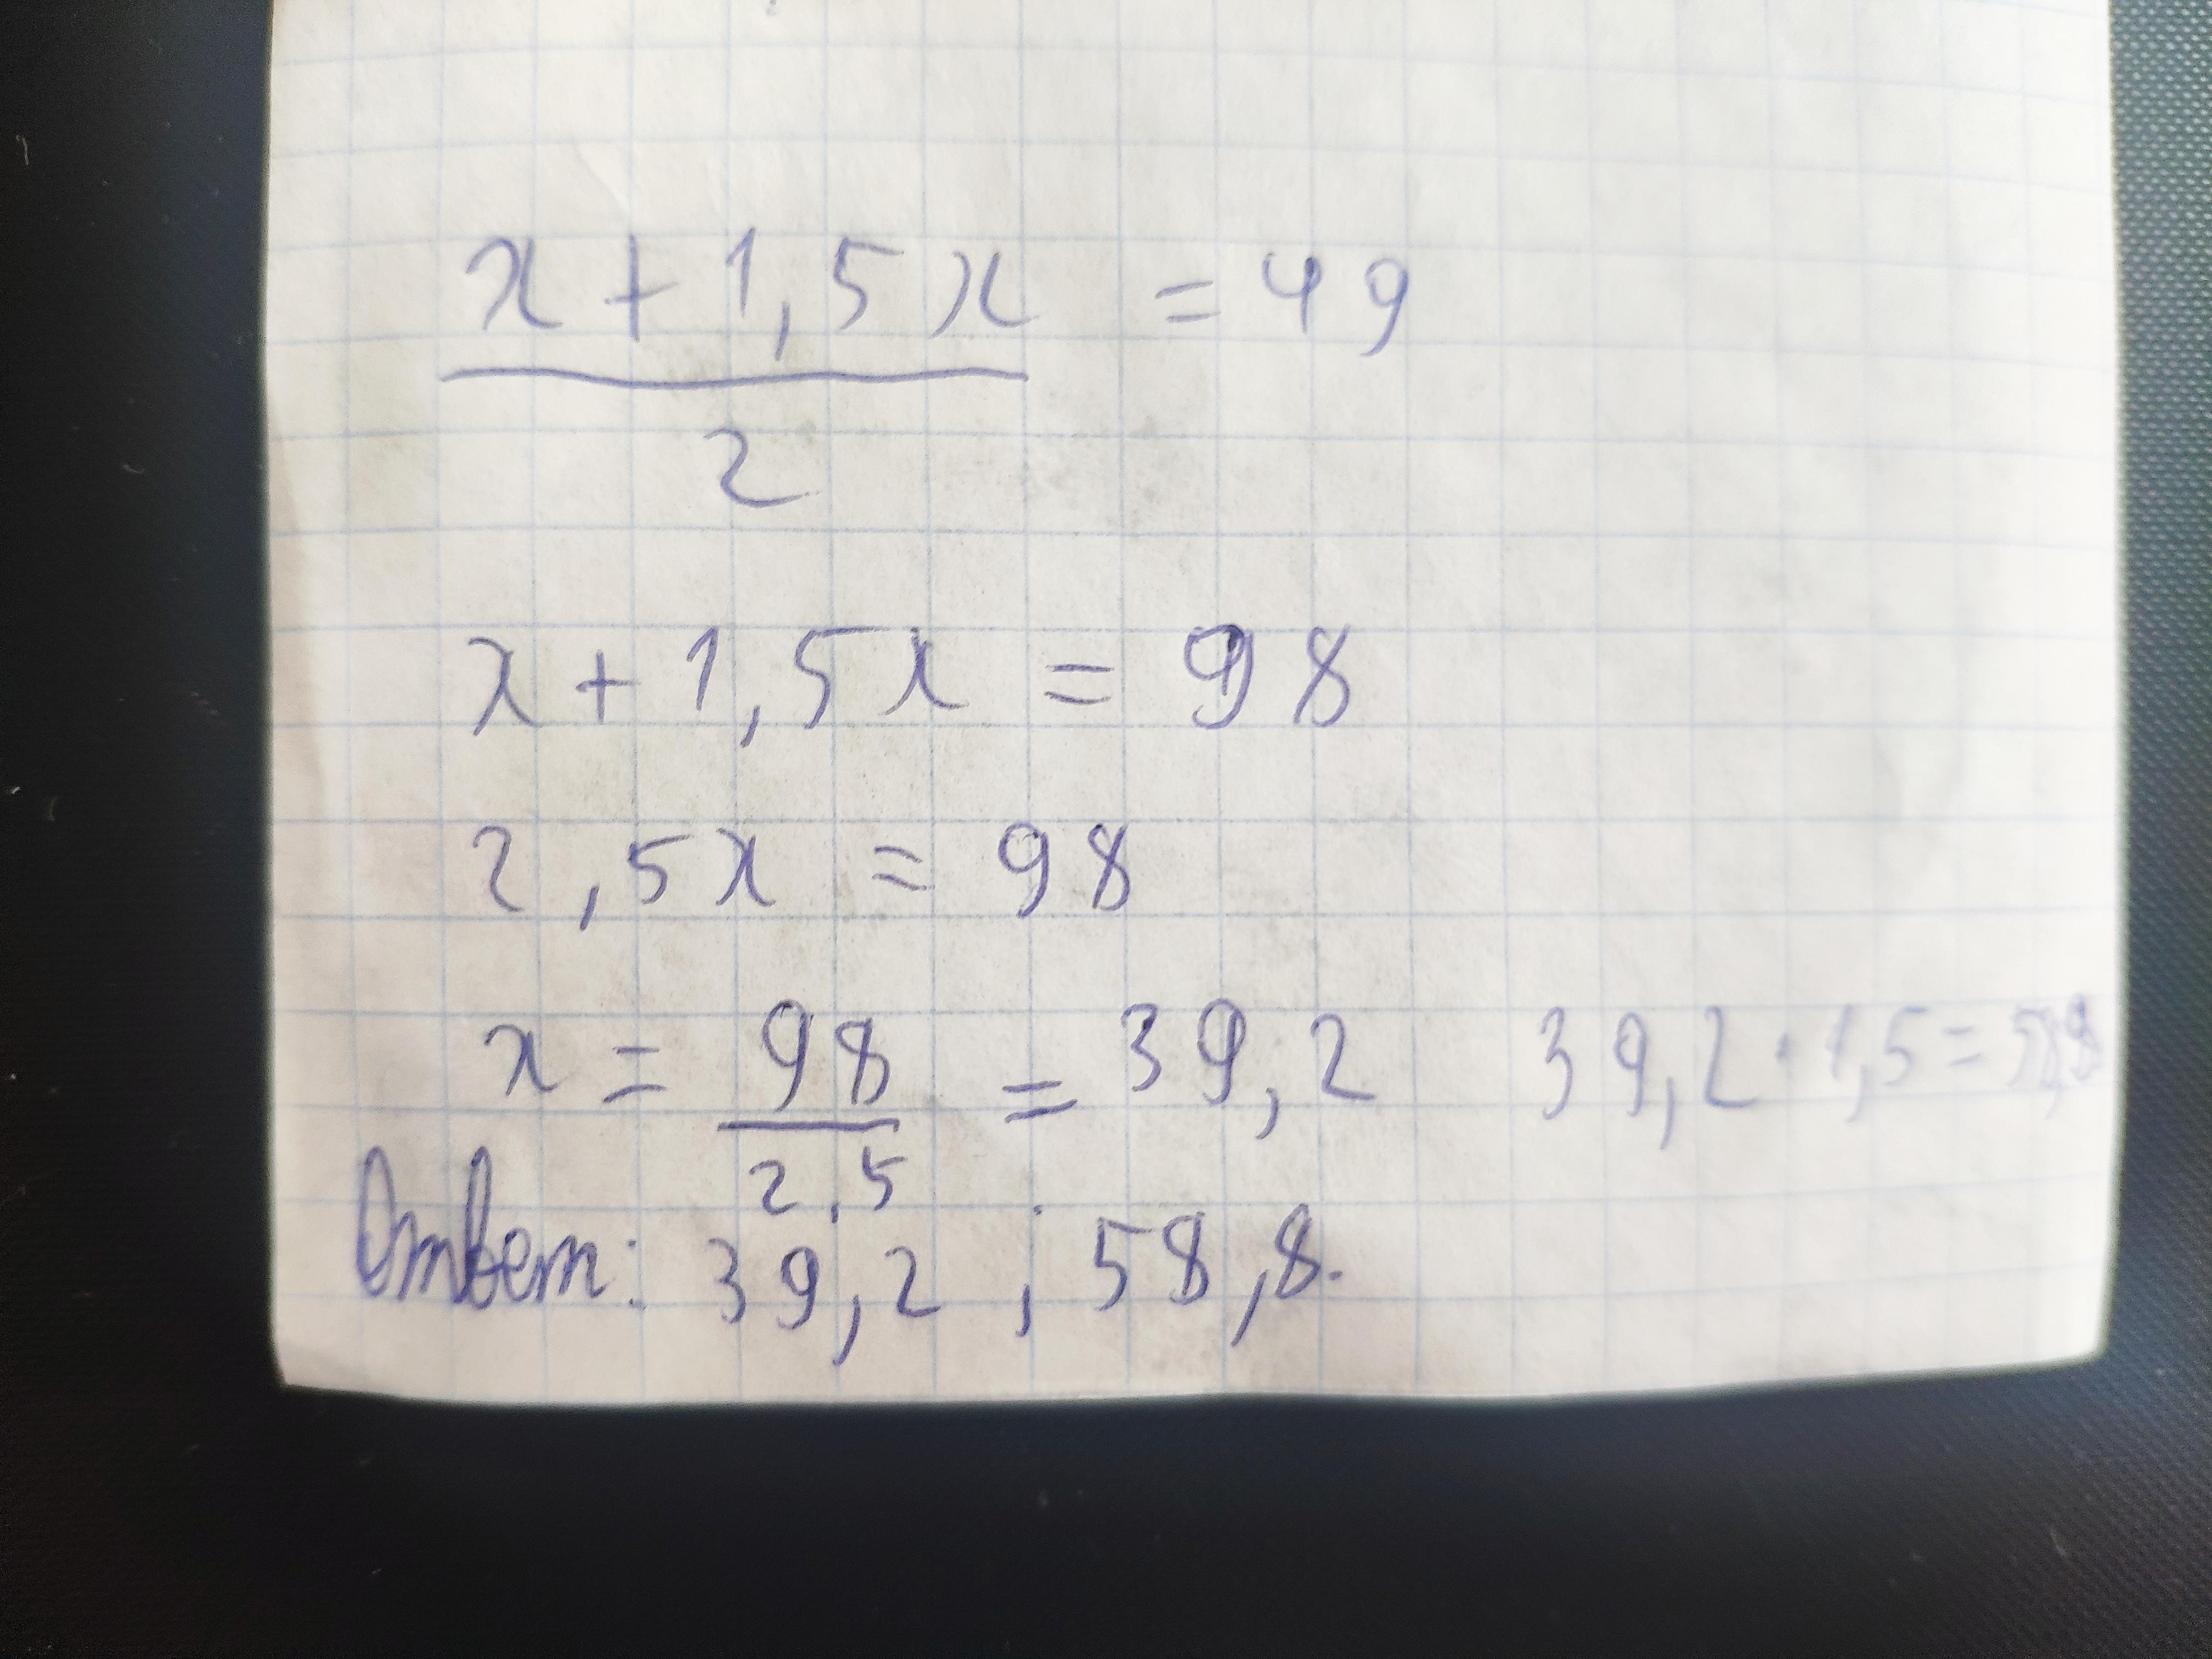 x + 1,5x = 49
2
x + 1,5x = 98
2,5x = 98
x = 98 = 39,2 39,2 · 1,5 =
2,5
Ответ: 39,2 ; 58,8.